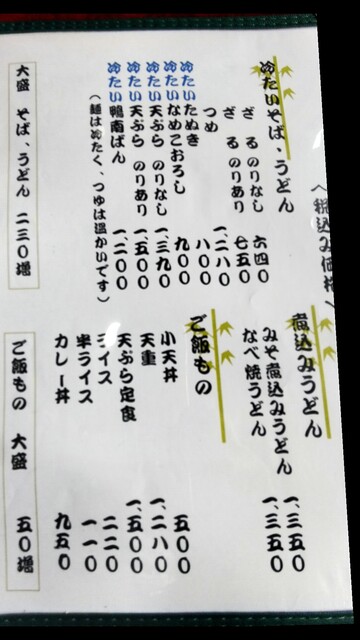 〈税込み価格〉
冷たいそば・うどん
ざる のりなし 六四〇
ざる のりあり 七五〇
つめ 一、二八〇
冷たいたぬき 八〇〇
冷たいなめこおろし 九〇〇
冷たい天ぷら のりなし 一、三九〇
冷たい天ぷら のりあり 一、五〇〇
冷たい鴨南ばん 一、二〇〇
(麺は冷たく、つゆは温かいです)
大盛 そば、うどん 二三〇増
煮込みうどん
みそ煮込みうどん 一、三五〇
なべ焼うどん 一、三五〇
ご飯もの
小天丼 五〇〇
天重 一、二八〇
天ぷら定食 一、五〇〇
ライス 二二〇
半ライス 一一〇
カレー丼 九五〇
ご飯もの 大盛 五〇増